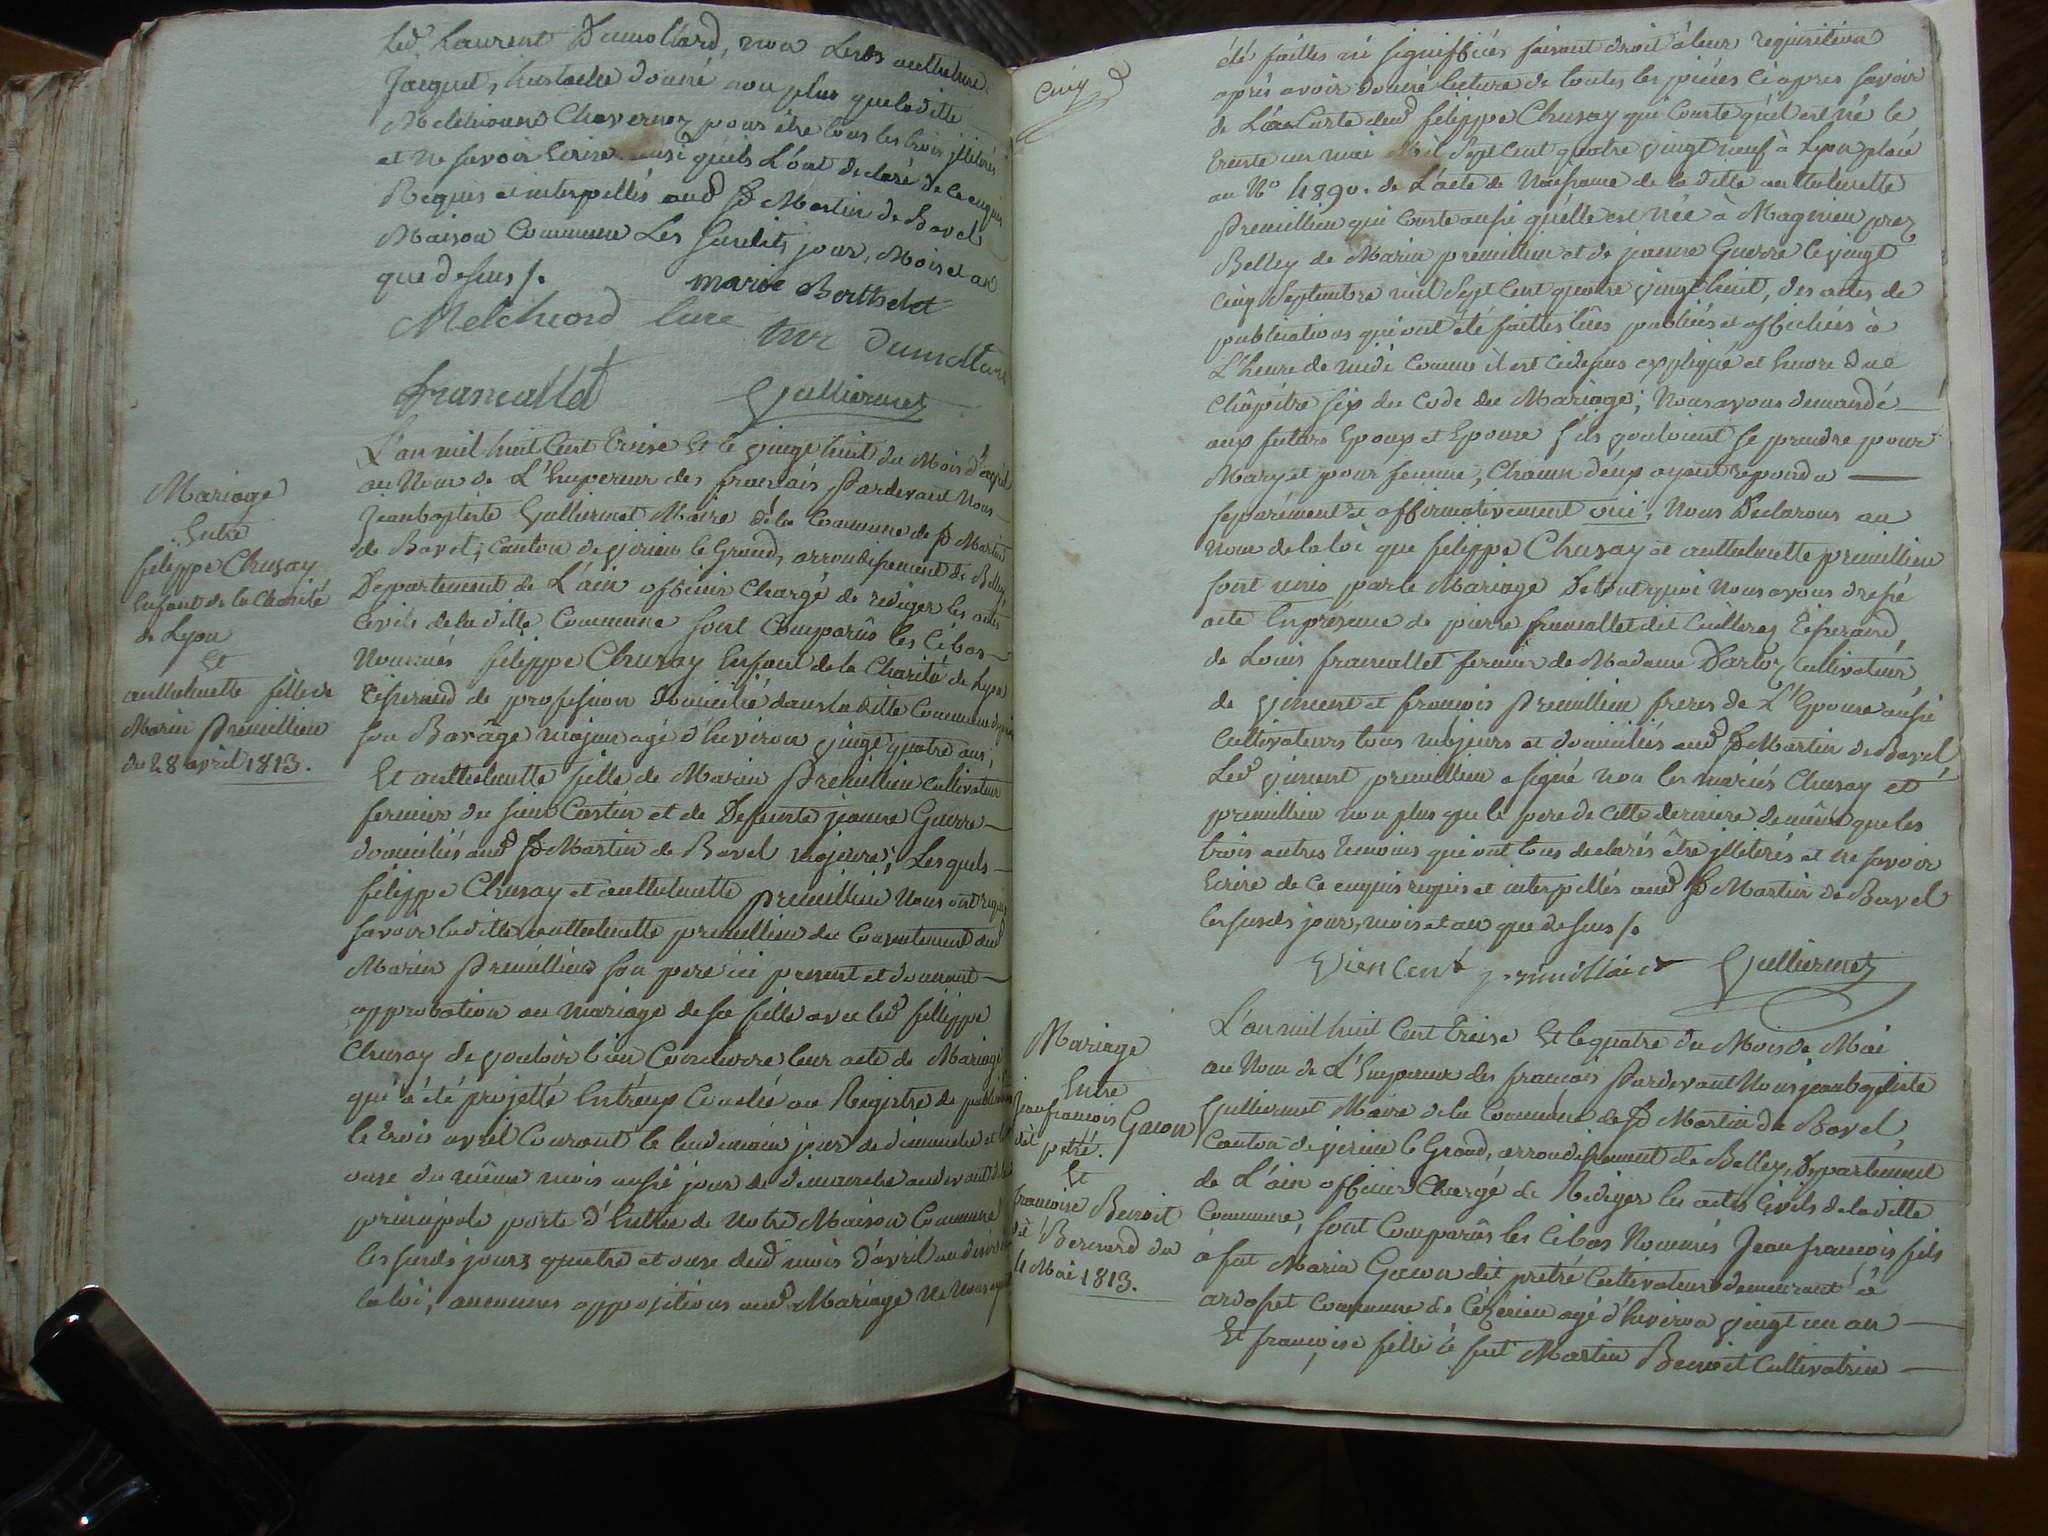 led. Laurent Dumollard, non Leros anthelme
Jacquet, Eustache Donné non plus que laditte
Melchionne Chavernoz pour être tous les trois jlliterés
et ne savoir Ecrire ainsi qu'ils L'ont declaré de ce enquis
Requis et interpellés aud. St Martin de Bavel
Maison Commune Les susdits jour, Mois et an
que dessus /.
marie Berthelet
Melchiord Cure
dumollard
francallet
Gulliermet
Mariage
Entre
filippe Chusay
Enfant de la Charité
de Lyon
Et
anthelmette fille de
Marin Premillieu
du 28 avril 1813.
L'an mil huit Cent Treise Et le vingt huit du Mois d'avril
au Nom de L'Empereur des francais, Pardevant Nous
Jeanbaptiste Gulliermet Maire de la Commune de St Martin
de Bavel, Canton de virieu le Grand, arrondissement de Belley,
Departement de L'ain officier Chargé de rediger les actes
Civils de la ditte Commune sont Comparûs les Cibas
Nommés filippe Chusay Enfant de la Charité de Lyon
Tisserand de profession Domicilié dans la ditte Commune depuis
son Basâge majeur agé d'heviron vingt quatre ans,
Et anthelmette fille de Marin Premillieu Cultivateur
fermier du sieur Costin et de Defunte jeanne Guerre
domiciliés aud. St Martin de Bavel majeure; Lesquels
filippe Chusay et anthelmette premillieu Nous ont requis
savoir laditte anthelmette premillieu du Consentement dud.
Marin Premillieu son pere ici present et donnant
approbation au mariage de sa fille avec led. filippe
Chusay de vouloir bien Conclurre leur acte de Mariage
qui a été projetté Entr'eux Couché au Registre de publications
le trois avril Courant le lendemain jour de dimanche et le
onze du même mois aussi jour de dimanche audevant de la
principale porte d'Entrée de Notre Maison Commune
les susds jours quatre et onze dud. mois d'avril au desir de
la loi, aucunes oppositions aud. Mariage Ne Nous ayant
Cinq
été faittes ni signiffiées faisant droit à leur requisition
après avoir donné lecture de toutes les pièces ci apres savoir
de L'acte dud. filippe Chusay qui Conste qu'il est né le
trente un mai Mil Sept Cent quatre vingt neuf à Lyon placé
au No 4890. de L'acte de Naissance de la ditte anthelmette
Premillieu qui Conste aussi qu'elle est Née à Magnieu prez
Belley de Marin premillieu et de jeanne Guerre le vingt
cinq Septembre mil Sept Cent quatre vingt huit, des actes de
publications qui ont été faittes lûes publiées et affichées à
L'heure de midi Comme il est cidessus expliqué et Encore due
Châpitre six du Code du Mariage; Nous avons demandé
aux futurs Epoux et Epouse s'ils vouloient se prendre pour
Mary et pour femme, Chacun d'eux ayant repondu
separément et affirmativement oui, Nous Declarons au
nom de la loi que filippe Chusay et anthelmette premillieu
sont unis par le Mariage De tout quoi Nous avons dressé
acte En présence de pierre francallet dit Cuilleraz Tisserand,
de Louis francallet fermier de Madame Darloz Cultivateur,
de vincent et francois Premillieu freres de L'Epouse aussi
Cultivateurs tous majeurs et domiciliés aud. St Martin de Bavel,
Led. vincent premillieu a signé non les mariés Chusay et
premillieu non plus que le pere de cette derniere de même que les
trois autres Temoins qui ont tous declarés être jlliterés et ne savoir
Ecrire de ce enquis requis et interpellés aud. St Martin de Bavel
les susds jour, mois et an que dessus /.
Viencent premilliaict
Gulliermet
Mariage
Entre
Jean francois Gacon
dit
prétré.
Et
francoise Benoit
dit Bernard du
4 Mai 1813.
L'an mil huit Cent Treise Et le quatre du Mois de Mai
au Nom de L'Empereur des francois Pardevant Nous jeanbaptiste
Gulliermet Maire de la Commune de St Martin de Bavel,
Canton de virieu le Grand, arrondissement de Belley, Departement
de L'ain officier Chargé de Rediger les actes Civils de la ditte
Commune, sont Comparûs les Cibas Nommés Jean françois fils
à fut Marin Gacon dit prétré Cultivateur demeurant à
ardosset Commune de Cézérieu agé d'heviron vingt un an
Et francoise fille à fut Martin Benoit Cultivatrice